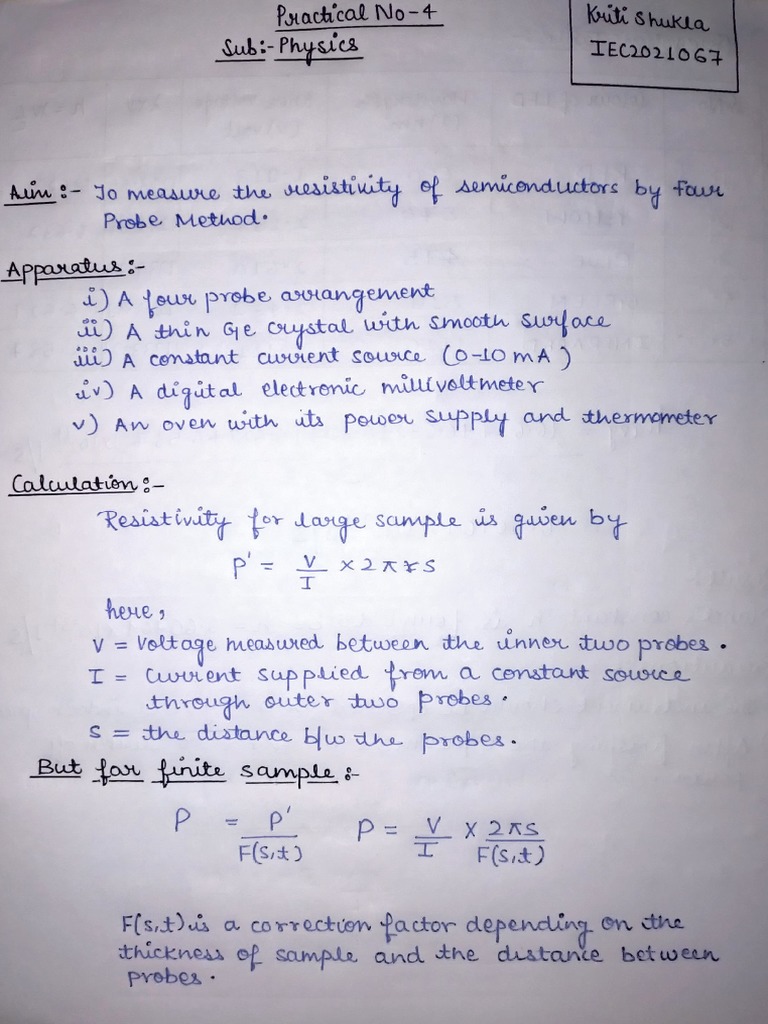 Practical No-4
Sub:- Physics
Kriti Shukla
IEC2021067
Aim:- To measure the resistivity of semiconductors by Four
Probe Method.
Apparatus:-
i) A four probe arrangement
ii) A thin Ge crystal with smooth surface
iii) A constant current source (0-10 mA)
iv) A digital electronic millivoltmeter
v) An oven with its power supply and thermometer
Calculation:-
Resistivity for large sample is given by
P' = V/I × 2π × s
here,
V = Voltage measured between the inner two probes.
I = Current supplied from a constant source
through outer two probes.
S = the distance b/w the probes.
But for finite sample:-
P = P'/F(s,t) P = V/I × 2πs/F(s,t)
F(s,t) is a correction factor depending on the
thickness of sample and the distance between
probes.